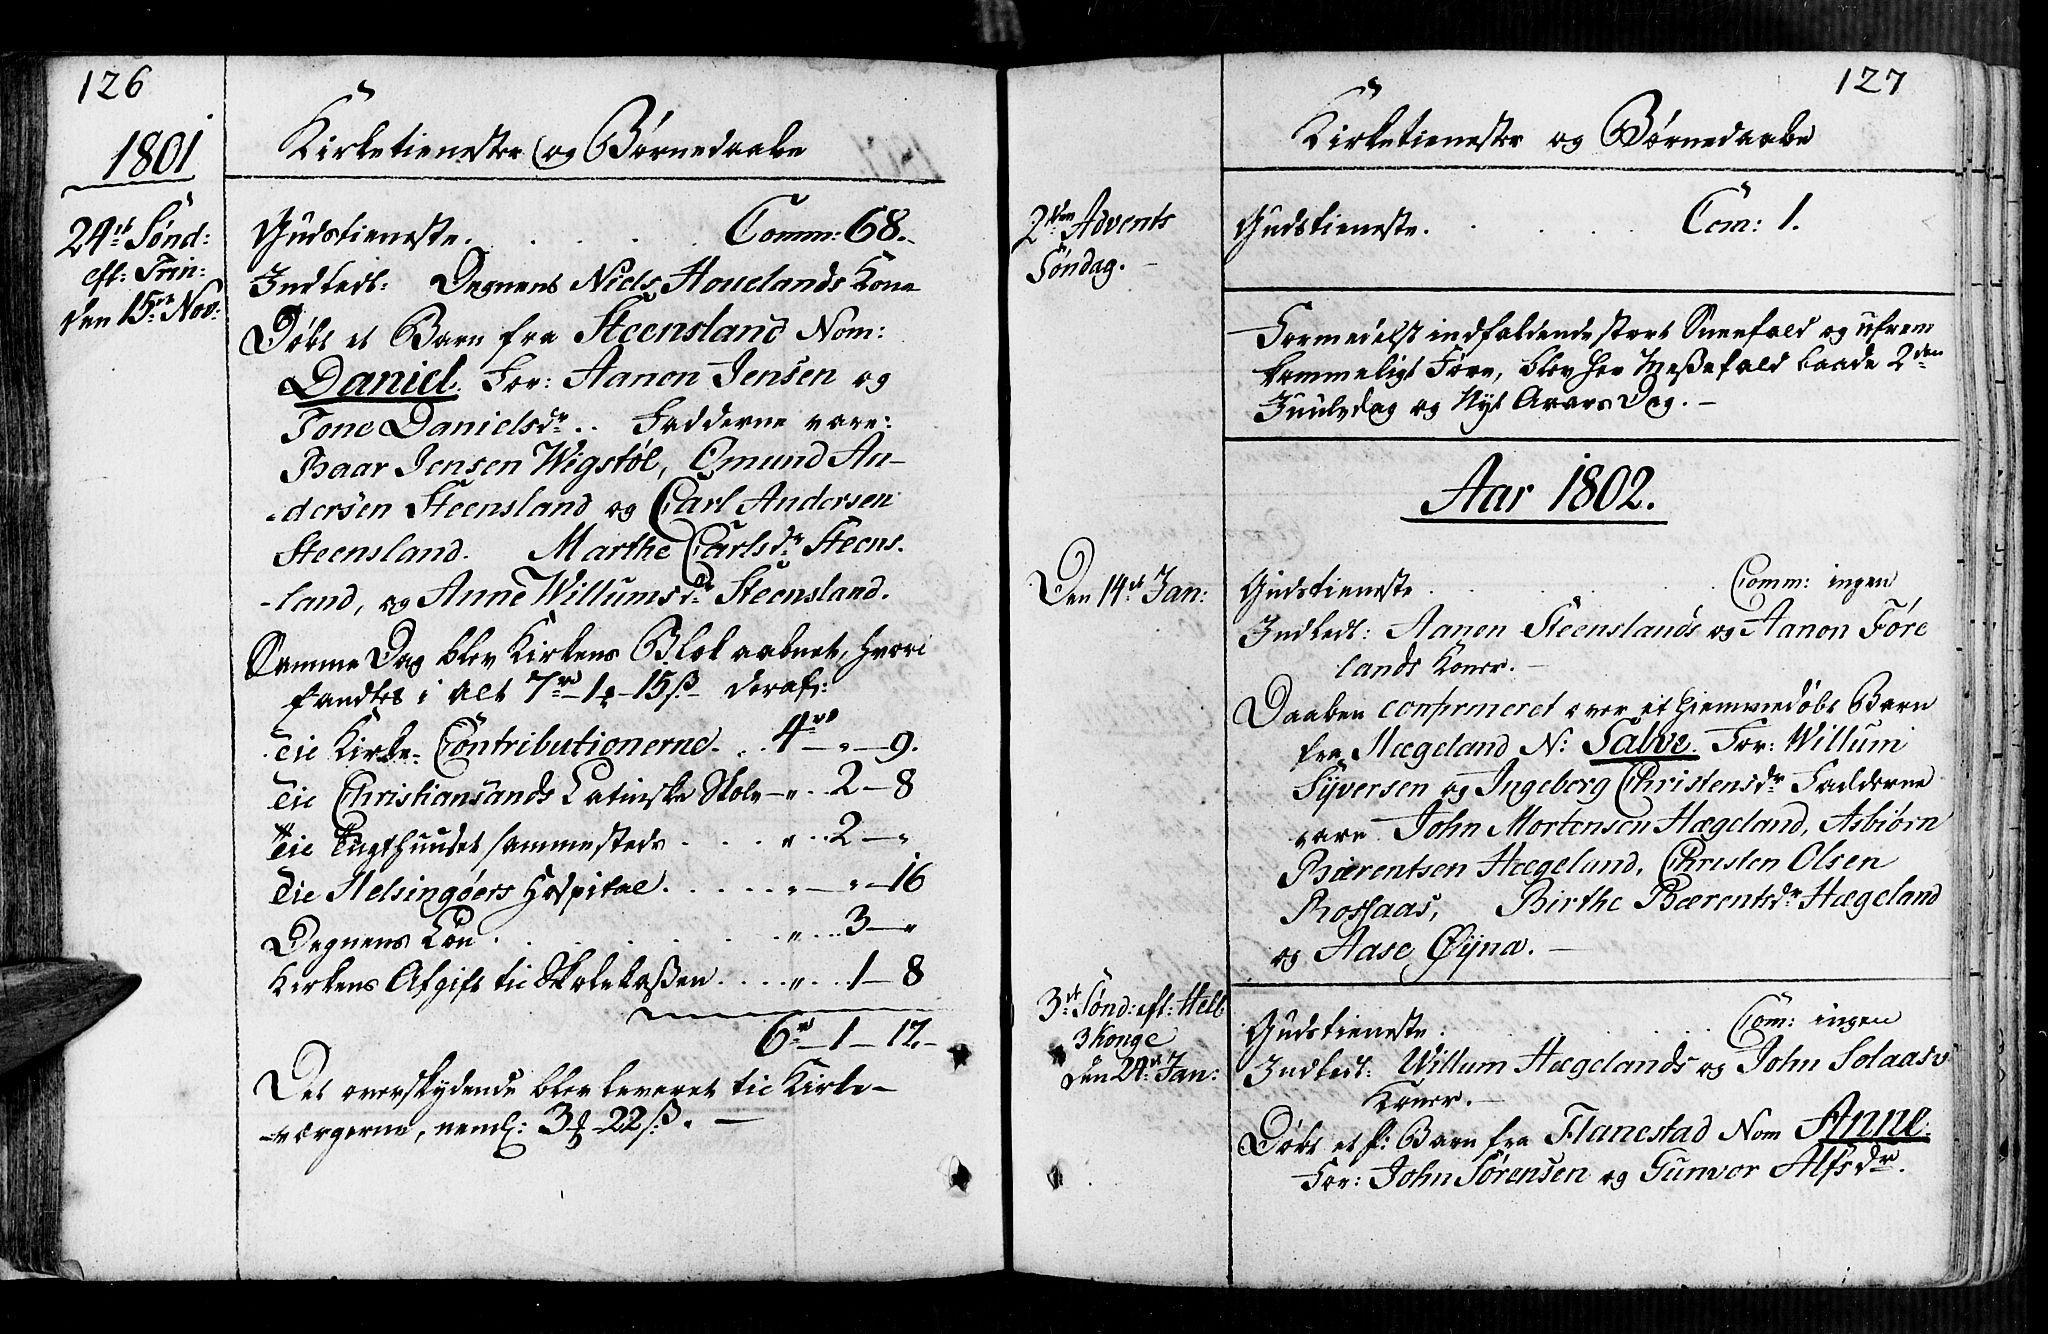 126
1801
Kirketienester og Børnedaabe
24de Sønd:
eft: Trin:
den 15de Nov:
Gudstieneste. . . . . Comm: 68.
Indledt: Degnens Niels Houelands Kone
Døbt et Barn fra Steensland Nom:
Daniel. For: Aanon Jensen og
Tone Danielsdr. Fadderne vare:
Baar Jensen Wigstøl, Omund An-
dersen Steensland og Carl Andersen
Steensland. Marthe Carlsdr Steens-
land, og Anne Willumsdr Steensland.
Samme Dag blev Kirkens Blok aabnet, hvori
fandtes i alt 7rd 1 15ß deraf:
Til Kirke-Contributionerne. . . 4rd - " - 9.
Til Christiansands Latinske Skole - " . 2 - 8
Til Tugthuuset sammesteds . . . " . . 2 - "
Til Helsingøers Hospital. . . . . " - " - 16
Degnens Løn . . . . . . " . . . 3 - "
Kirkens Afgift til Skolekaßen . . . . " . . 1 - 8
6rd - 1 - 17.
Det overskydende blev leveret til Kirke-
værgerne, neml: 3 22ß.
127
Kirketienester og Børnedaabe
2den Advents
Søndag.
Gudstieneste. . . . . . Com: 1.
Formedelst indfaldende stort Sneefald og ufrem
kommeligt Føre, blev her Meßefald baade 2den
Juuledag og Nyt Aars Dag.
Aar 1802.
Den 14de Jan:
Gudstieneste . . . . . Comm: ingen
Indledt: Aanen Steenslands og Aanon Føre
lands Koner.
Daaben confirmeret over et hiemmedøbt Barn
fra Hægeland N: Salve. For: Willum
Syversen og Ingeborg Christensdr Fadderne
vare John Mortensen Hægeland, Asbiørn
Bærentsen Hægeland, Christen Olsen
Rossaas, Birthe Bærentsdr Hægeland
og Aase Øyna.
3de Sønd: eft: Hell
3 Konge
den 24de Jan:
Gudstieneste . . . . . Com: ingen
Indledt: Willum Hægelands og John Solaas
Koner.
Døbt et Barn fra Flanestad Nom Anne.
For: John Sørensen og Gunvor Alfsdr.